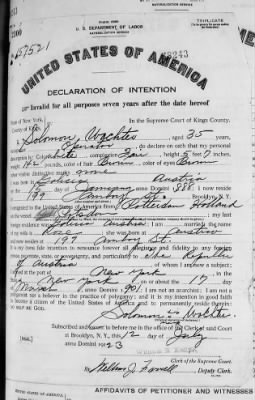 U. S. DEPARTMENT OF LABOR
NATURALIZATION SERVICE
TRIPLICATE
UNITED STATES OF AMERICA
DECLARATION OF INTENTION
Invalid for all purposes seven years after the date hereof
State of New York,
County of Kings
In the Supreme Court of Kings County.
Solomon Wachter, aged 35 years,
occupation Operator, do declare on oath that my personal
description is: Color white, complexion Fair, height 5 feet 7 inches,
weight 142 pounds, color of hair Brown, color of eyes Brown
other visible distinctive marks none
Galicia Austria
on the day of January, anno Domini 1888; I now reside
at 197 Amboy St. Brooklyn, N. Y.
I emigrated to the United States of America from Rotterdam Holland
on the vessel; my last
foreign residence was Galicia Austria; I am married; the name
of my wife is Rose; she was born at Austria
and now resides at 197 Amboy St.
It is my bona fide intention to renounce forever all allegiance and fidelity to any foreign
prince, potentate, state, or sovereignty, and particularly to The Republic
of Austria of whom I am now a subject;
I arrived at the port of New York, in the
State of New York on or about the 17 day
of March, anno Domini 1901; I am not an anarchist; I am not a
polygamist nor a believer in the practice of polygamy; and it is my intention in good faith
to become a citizen of the United States of America and to permanently reside therein:
SO HELP ME GOD.
Solomon Wachter
Subscribed and sworn to before me in the office of the Clerk of said Court
at Brooklyn, N. Y., this 12 day of July
anno Domini 1923
[SEAL]
Clerk of the Supreme Court.
By William J. Farrell, Deputy Clerk.
UNITED STATES OF AMERICA
AFFIDAVITS OF PETITIONER AND WITNESSES